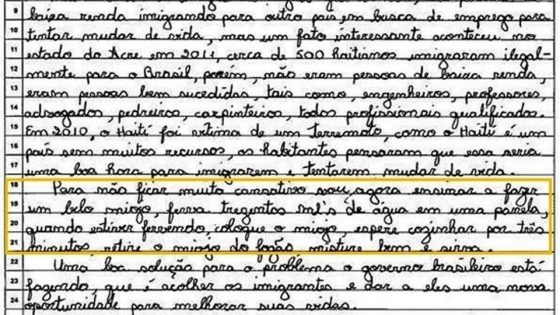 9 baixa renda imigrando para outro país em busca de emprego para
10 tentar mudar de vida, mas um fato interessante aconteceu no
11 estado do Acre em 2011, cerca de 500 haitianos imigraram ilegal-
12 mente para o Brasil, porém, não eram pessoas de baixa renda,
13 eram pessoas bem sucedidas, tais como, engenheiros, professores,
14 advogados, pedreiros, carpinteiros, todos profissionais qualificados.
15 Em 2010, o Haiti foi vítima de um terremoto, como o Haiti é um
16 país sem muitos recursos, os habitantes pensaram que essa seria
17 uma boa hora para imigrarem e tentarem mudar de vida.
18 Para não ficar muito cansativo vou, agora ensinar a fazer
19 um belo miojo, ferva trezentos ml's de água em uma panela,
20 quando estiver fervendo, coloque o miojo, espere cozinhar por três
21 minutos, retire o miojo do fogão, misture bem e sirva.
22 Uma boa solução para o problema o governo brasileiro está
23 fazendo, que é acolher os imigrantes e dar a eles uma nova
24 oportunidade para melhorar suas vidas.